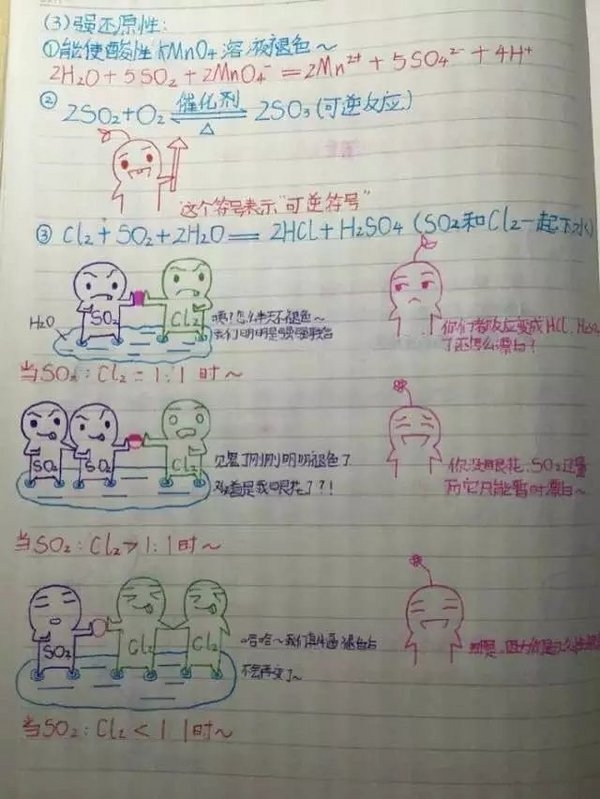 (3)强还原性:
①能使酸性KMnO₄溶液褪色~
2H₂O+5SO₂+2MnO₄⁻=2Mn²⁺+5SO₄²⁻+4H⁺
② 2SO₂+O₂ 催化剂 ⇌ △ 2SO₃(可逆反应)
"这个符号表示"可逆符号"
③ Cl₂+SO₂+2H₂O=2HCl+H₂SO₄(SO₂和Cl₂一起下水)
H₂O
SO₂
Cl₂
咦?怎么半天不褪色~
我们明明是强强联合
你们都反应变成HCl、H₂SO₄
了还怎么漂白?
当SO₂:Cl₂=1:1时~
SO₂
SO₂
Cl₂
见鬼了刚刚明明褪色了
难道是我眼花了?!
你没眼花,SO₂过量
而它只能暂时漂白~
当SO₂:Cl₂>1:1时~
SO₂
Cl₂
Cl₂
哈哈~我们真牛逼褪色后
不会再变了~
当SO₂:Cl₂<1:1时~